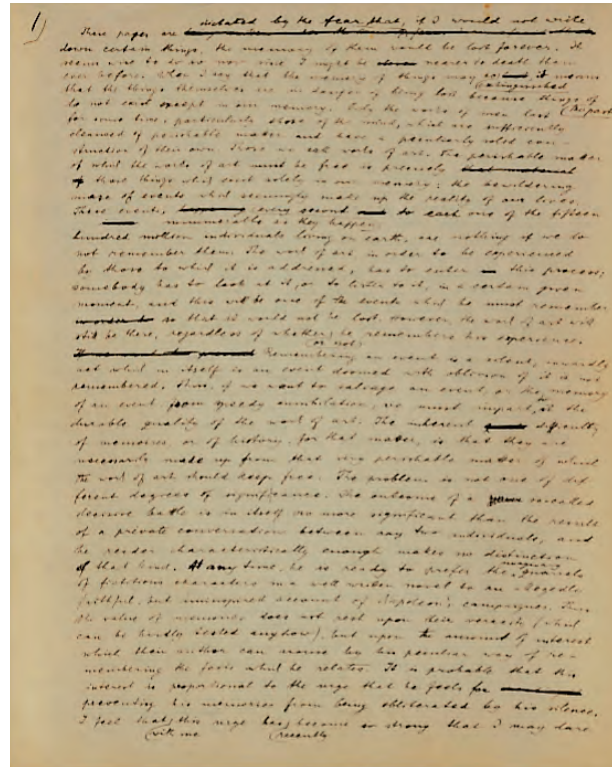 1)
dictated by the fear that, if I would not write
These paper are
down certain things, the memory of them would be lost forever. It
seems wise to do so now since I might be nearer to death than
ever before. When I say that the memory of things may it means
extinguished
that the things themselves are in danger of being lost because things of
do not exist except in our memory. Only the works of men last
for some time, particularly those of the mind, which are sufficiently
cleansed of perishable matter and have a peculiarly solid con-
struction of their own. Those we call works of art. The perishable matter
of which the works of art must be free is precisely that material
of those things which exist solely in our memory: the bewildering
maze of events which seemingly make up the reality of our lives.
These events, every second to each one of the fifteen
innumerable as they happen
hundred million individuals living on earth, are nothing if we do
not remember them. The work of art in order to be experienced
by those to which it is addressed, has to enter this process;
somebody has to look at it, or to listen to it, in a certain given
moment, and this will be one of the events which he must remember
in order to so that it would not be lost. However, the work of art will
still be there, regardless of whether he remembers his experience.
(or not)
Remembering an event is a silent, inwardly
act which in itself is an event doomed with oblivion if it is not
remembered. Thus, if we want to salvage an event, or the memory
of an event from greedy annihilation, we must impart to it the
durable quality of the work of art. The inherent difficulty
of memories, or of history, for that matter, is that they are
necessarily made up from that very perishable matter of which
the work of art should keep free. The problem is not one of dif-
ferent degrees of significance. The outcome of a so called
decisive battle is in itself no more significant than the result
of a private conversation between any two individuals, and
the reader characteristically enough makes no distinction
of that kind. At any time, he is ready to prefer the quarrels
imaginary
of fictitious characters in a well written novel to an allegedly
faithful, but uninspired account of Napoleon's campaigns. Thus
the value of memories does not rest upon their veracity (which
can be hardly tested anyhow), but upon the amount of interest
which their author can arouse by his peculiar way of re-
membering the facts which he relates. It is probable that this
interest is proportional to the urge that he feels for
preventing his memories from being obliterated by his silence.
I feel that this urge has become so strong that I may dare
(with me (recently